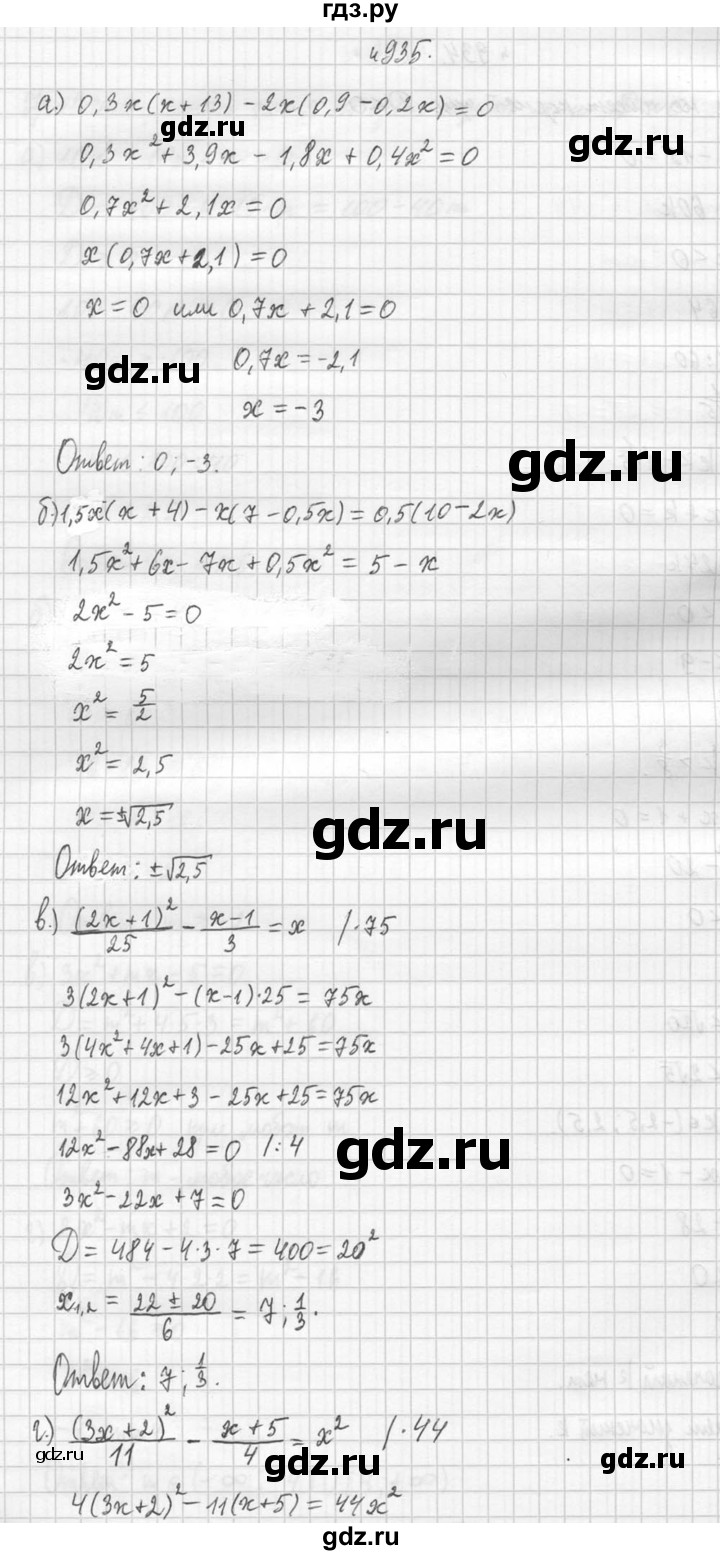 гдз.ру
н935.
а.) 0,3x(x+13) - 2x(0,9-0,2x)=0
gdz.ru
gdz.ru
0,3x²+3,9x - 1,8x + 0,4x²=0
0,7x²+2,1x=0
gdz.ru
x(0,7x+2,1)=0
x=0 или 0,7x+2,1=0
gdz.ru
0,7x=-2,1
x=-3
Ответ: 0; -3.
gdz.ru
б.) 1,5x(x+4) - x(7-0,5x)=0,5(10-2x)
1,5x²+6x-7x+0,5x² = 5-x
2x²-5=0
2x²=5
x²= 5/2
x²= 2,5
x=±√2,5
gdz.ru
Ответ: ±√2,5
в.) (2x+1)²/25 - (x-1)/3 = x /·75
3(2x+1)²-(x-1)·25= 75x
3(4x²+4x+1)-25x+25=75x
12x²+12x+3-25x+25=75x
12x²-88x+28=0 /:4
gdz.ru
3x²-22x+7=0
D= 484-4·3·7=400=20²
x₁,₂ = (22±20)/6 = 7; 1/3.
Ответ: 7; 1/3.
г.) (3x+2)²/11 - (x+5)/4 = x² /·44
gdz.ru
gdz.ru
gdz.ru
4(3x+2)²-11(x+5)=44x²
gdz.ru